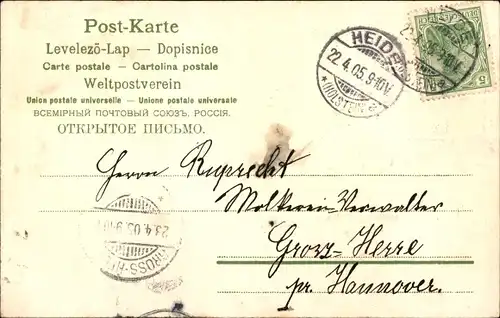 Post-Karte
Levelező-Lap — Dopisnice
Carte postale — Cartolina postale
Weltpostverein
Union postale universelle — Unione postale universale
ВСЕМІРНЫЙ ПОЧТОВЫЙ СОЮЗЪ, РОССІЯ.
ОТКРЫТОЕ ПИСЬМО.
HEIDE
22.4.05.9-10V.
*(HOLSTEIN)*
5
Herrn Ruprecht
Molkerei-Verwalter
Gross-Herre
pr. Hannover.
23.4.05.9-10
GROSS-H